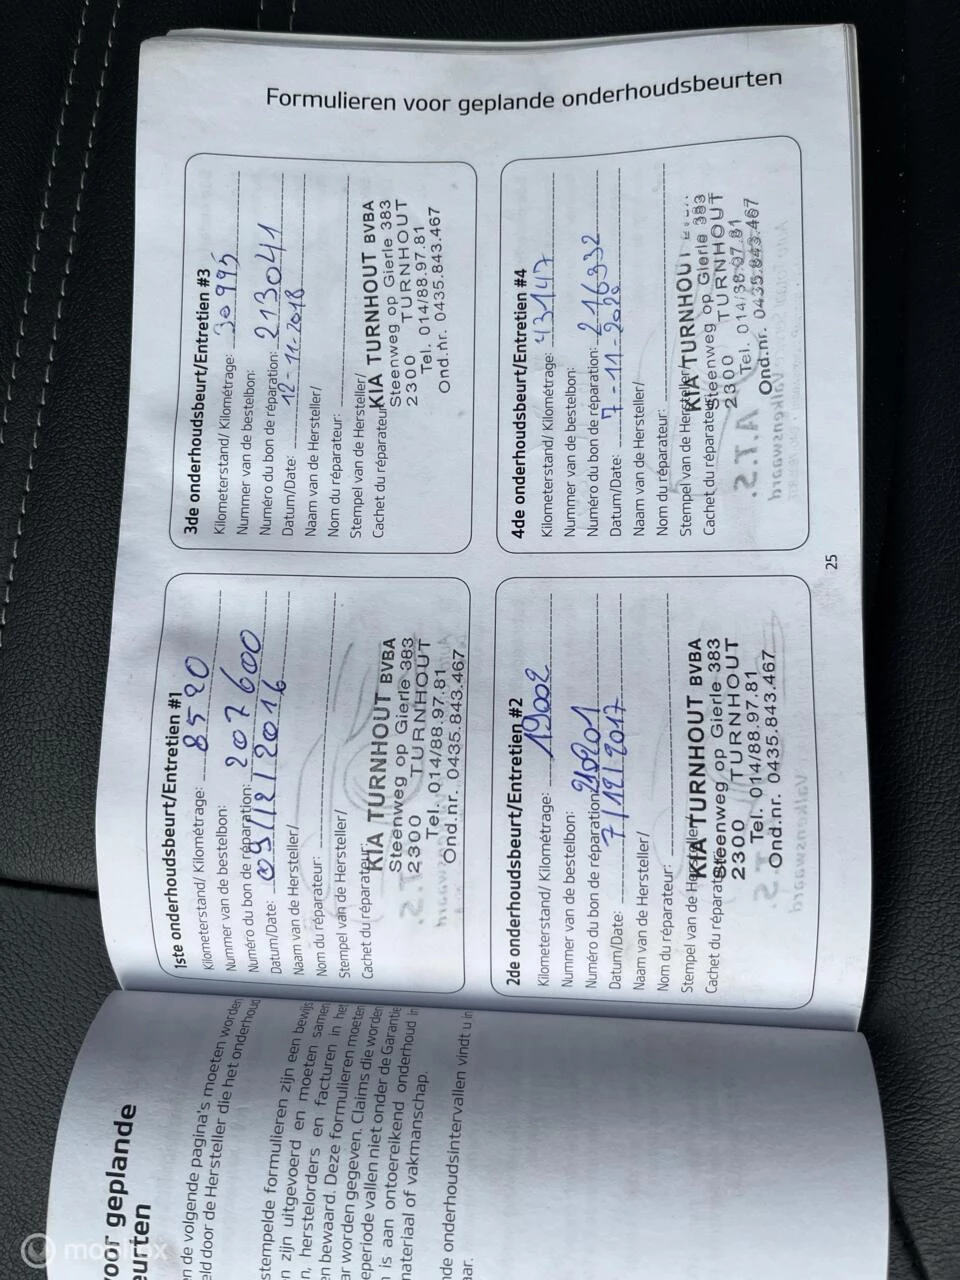 voor geplande
eurten
en de volgende pagina's moeten worden
eld door de Hersteller die het onderhoud
stempelde formulieren zijn een bewijs
n zijn uitgevoerd en moeten samen
n, herstelorders en facturen in het
en bewaard. Deze formulieren moeten
ar worden gegeven. Claims die worden
eperiode vallen niet onder de Garantie
n is aan ontoereikend onderhoud in
materiaal of vakmanschap.
nde onderhoudsintervallen vindt u in
aar.
Formulieren voor geplande onderhoudsbeurten
1ste onderhoudsbeurt/Entretien #1
Kilometerstand/ Kilométrage: 8520
Nummer van de bestelbon:
Numéro du bon de réparation: 207600
Datum/Date: 09/12/2016
Naam van de Hersteller/
Nom du réparateur:
Stempel van de Hersteller/
Cachet du réparateur:
KIA TURNHOUT BVBA
Steenweg op Gierle 383
2300 TURNHOUT
Tel. 014/88.97.81
Ond.nr. 0435.843.467
3de onderhoudsbeurt/Entretien #3
Kilometerstand/ Kilométrage: 30995
Nummer van de bestelbon:
Numéro du bon de réparation: 213041
Datum/Date: 12-11-2018
Naam van de Hersteller/
Nom du réparateur:
Stempel van de Hersteller/
Cachet du réparateur
KIA TURNHOUT BVBA
Steenweg op Gierle 383
2300 TURNHOUT
Tel. 014/88.97.81
Ond.nr. 0435.843.467
2de onderhoudsbeurt/Entretien #2
Kilometerstand/ Kilométrage: 19002
Nummer van de bestelbon:
Numéro du bon de réparation
Datum/Date: 7/12/2017
Naam van de Hersteller/
Nom du réparateur:
Stempel van de Hersteller/
Cachet du réparateur
KIA TURNHOUT BVBA
Steenweg op Gierle 383
2300 TURNHOUT
Tel. 014/88.97.81
Ond.nr. 0435.843.467
4de onderhoudsbeurt/Entretien #4
Kilometerstand/ Kilométrage: 43147
Nummer van de bestelbon:
Numéro du bon de réparation: 216332
Datum/Date: 7-11-2020
Naam van de Hersteller/
Nom du réparateur:
Stempel van de Hersteller/
Cachet du réparateur
KIA TURNHOUT
Steenweg op Gierle 383
2300 TURNHOUT
Tel. 014/88.97.81
Ond.nr. 0435.843.467
25
mobilox